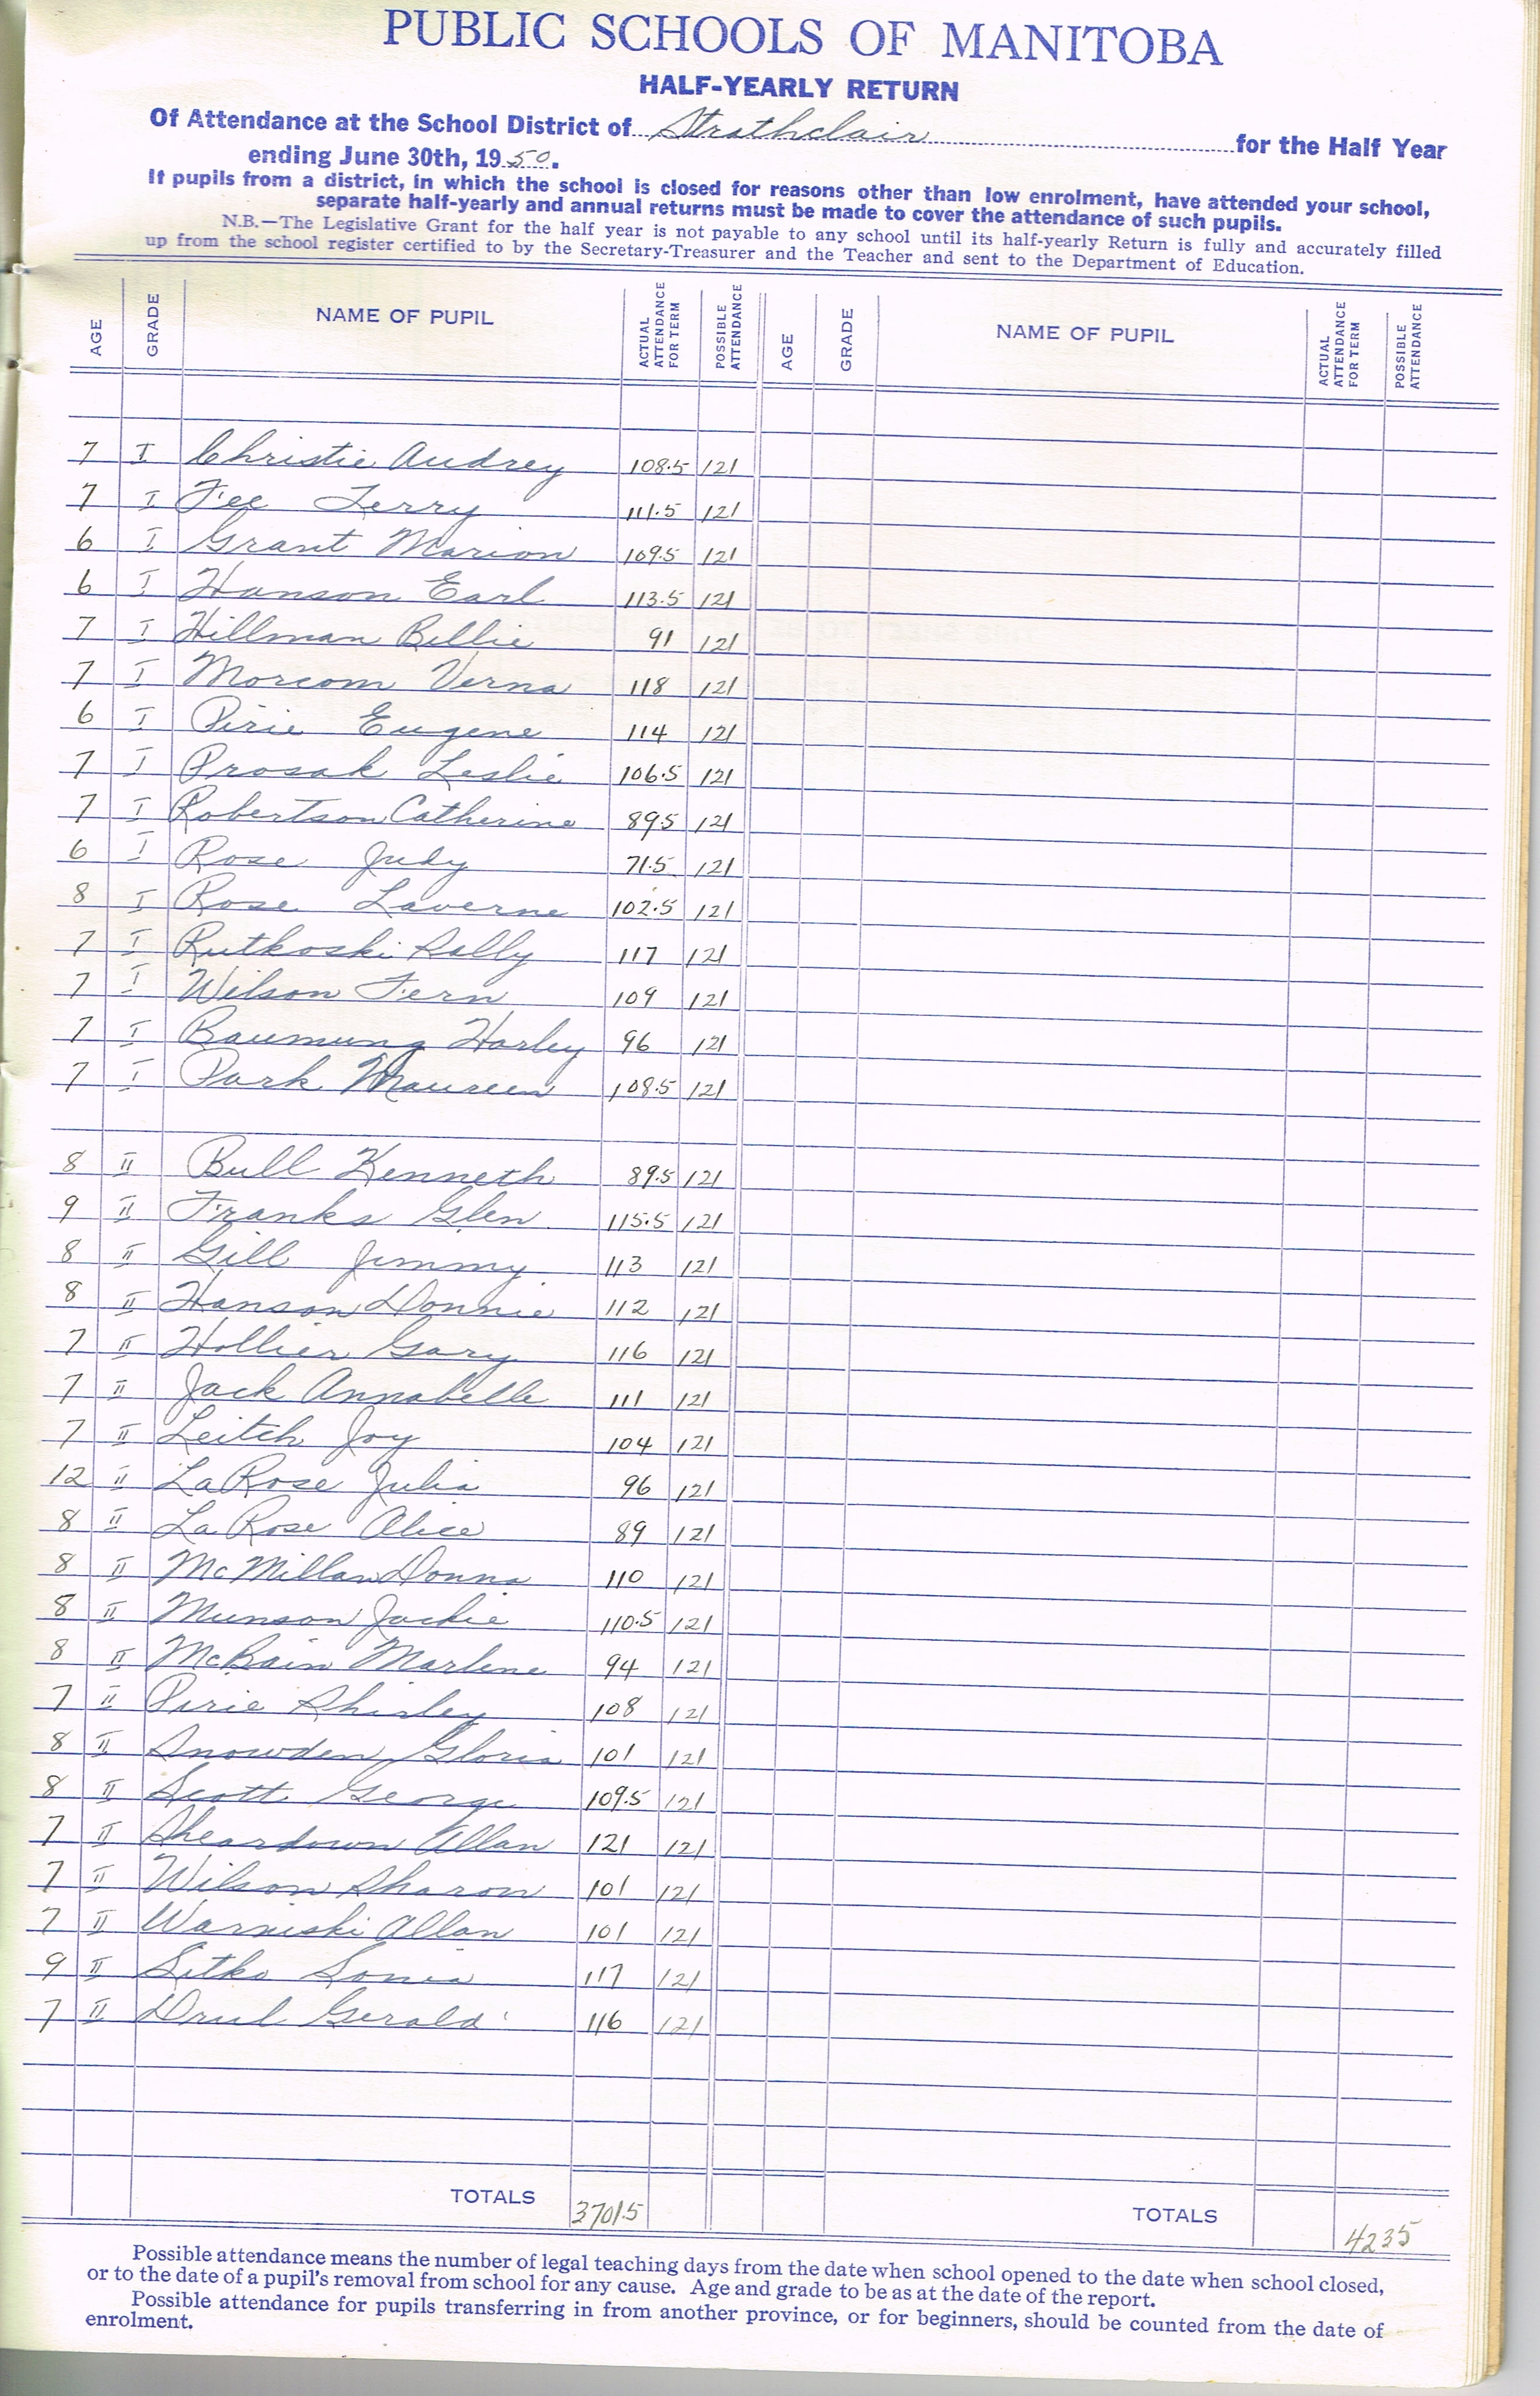 PUBLIC SCHOOLS OF MANITOBA
HALF-YEARLY RETURN
Of Attendance at the School District of Strathclair for the Half Year
ending June 30th, 1950.
If pupils from a district, in which the school is closed for reasons other than low enrolment, have attended your school,
separate half-yearly and annual returns must be made to cover the attendance of such pupils.
N.B.—The Legislative Grant for the half year is not payable to any school until its half-yearly Return is fully and accurately filled
up from the school register certified to by the Secretary-Treasurer and the Teacher and sent to the Department of Education.
AGE GRADE NAME OF PUPIL ACTUAL ATTENDANCE FOR TERM POSSIBLE ATTENDANCE AGE GRADE NAME OF PUPIL ACTUAL ATTENDANCE FOR TERM POSSIBLE ATTENDANCE
7 I Christie Audrey 108.5 121
7 I Fee Terry 111.5 121
6 I Grant Marion 109.5 121
6 I Hanson Earl 113.5 121
7 I Hillman Billie 91 121
7 I Morcom Verna 118 121
6 I Pirie Eugene 114 121
7 I Prosak Leslie 106.5 121
7 I Robertson Catherine 89.5 121
6 I Rose Judy 71.5 121
8 I Rose Laverne 102.5 121
7 I Rutkoski Sally 117 121
7 I Wilson Fern 109 121
7 I Baumung Harley 96 121
7 I Park Maureen 108.5 121
8 II Bull Kenneth 89.5 121
9 II Franks Glen 115.5 121
8 II Gill Jimmy 113 121
8 II Hanson Donnie 112 121
7 II Hollier Gary 116 121
7 II Jack Annabelle 111 121
7 II Leitch Joy 104 121
12 II LaRose Julia 96 121
8 II La Rose Alice 89 121
8 II McMillan Donna 110 121
8 II Munson Jackie 110.5 121
8 II McBain Marlene 94 121
7 II Pirie Shirley 108 121
8 II Snowden Gloria 101 121
8 II Scott George 109.5 121
7 II Sheardown Allan 121 121
7 II Wilson Sharon 101 121
7 II Warniski Allan 101 121
9 II Sitko Sonia 117 121
7 II Drul Gerald 116 121
TOTALS 3701.5 TOTALS 4235
Possible attendance means the number of legal teaching days from the date when school opened to the date when school closed,
or to the date of a pupil's removal from school for any cause. Age and grade to be as at the date of the report.
Possible attendance for pupils transferring in from another province, or for beginners, should be counted from the date of
enrolment.